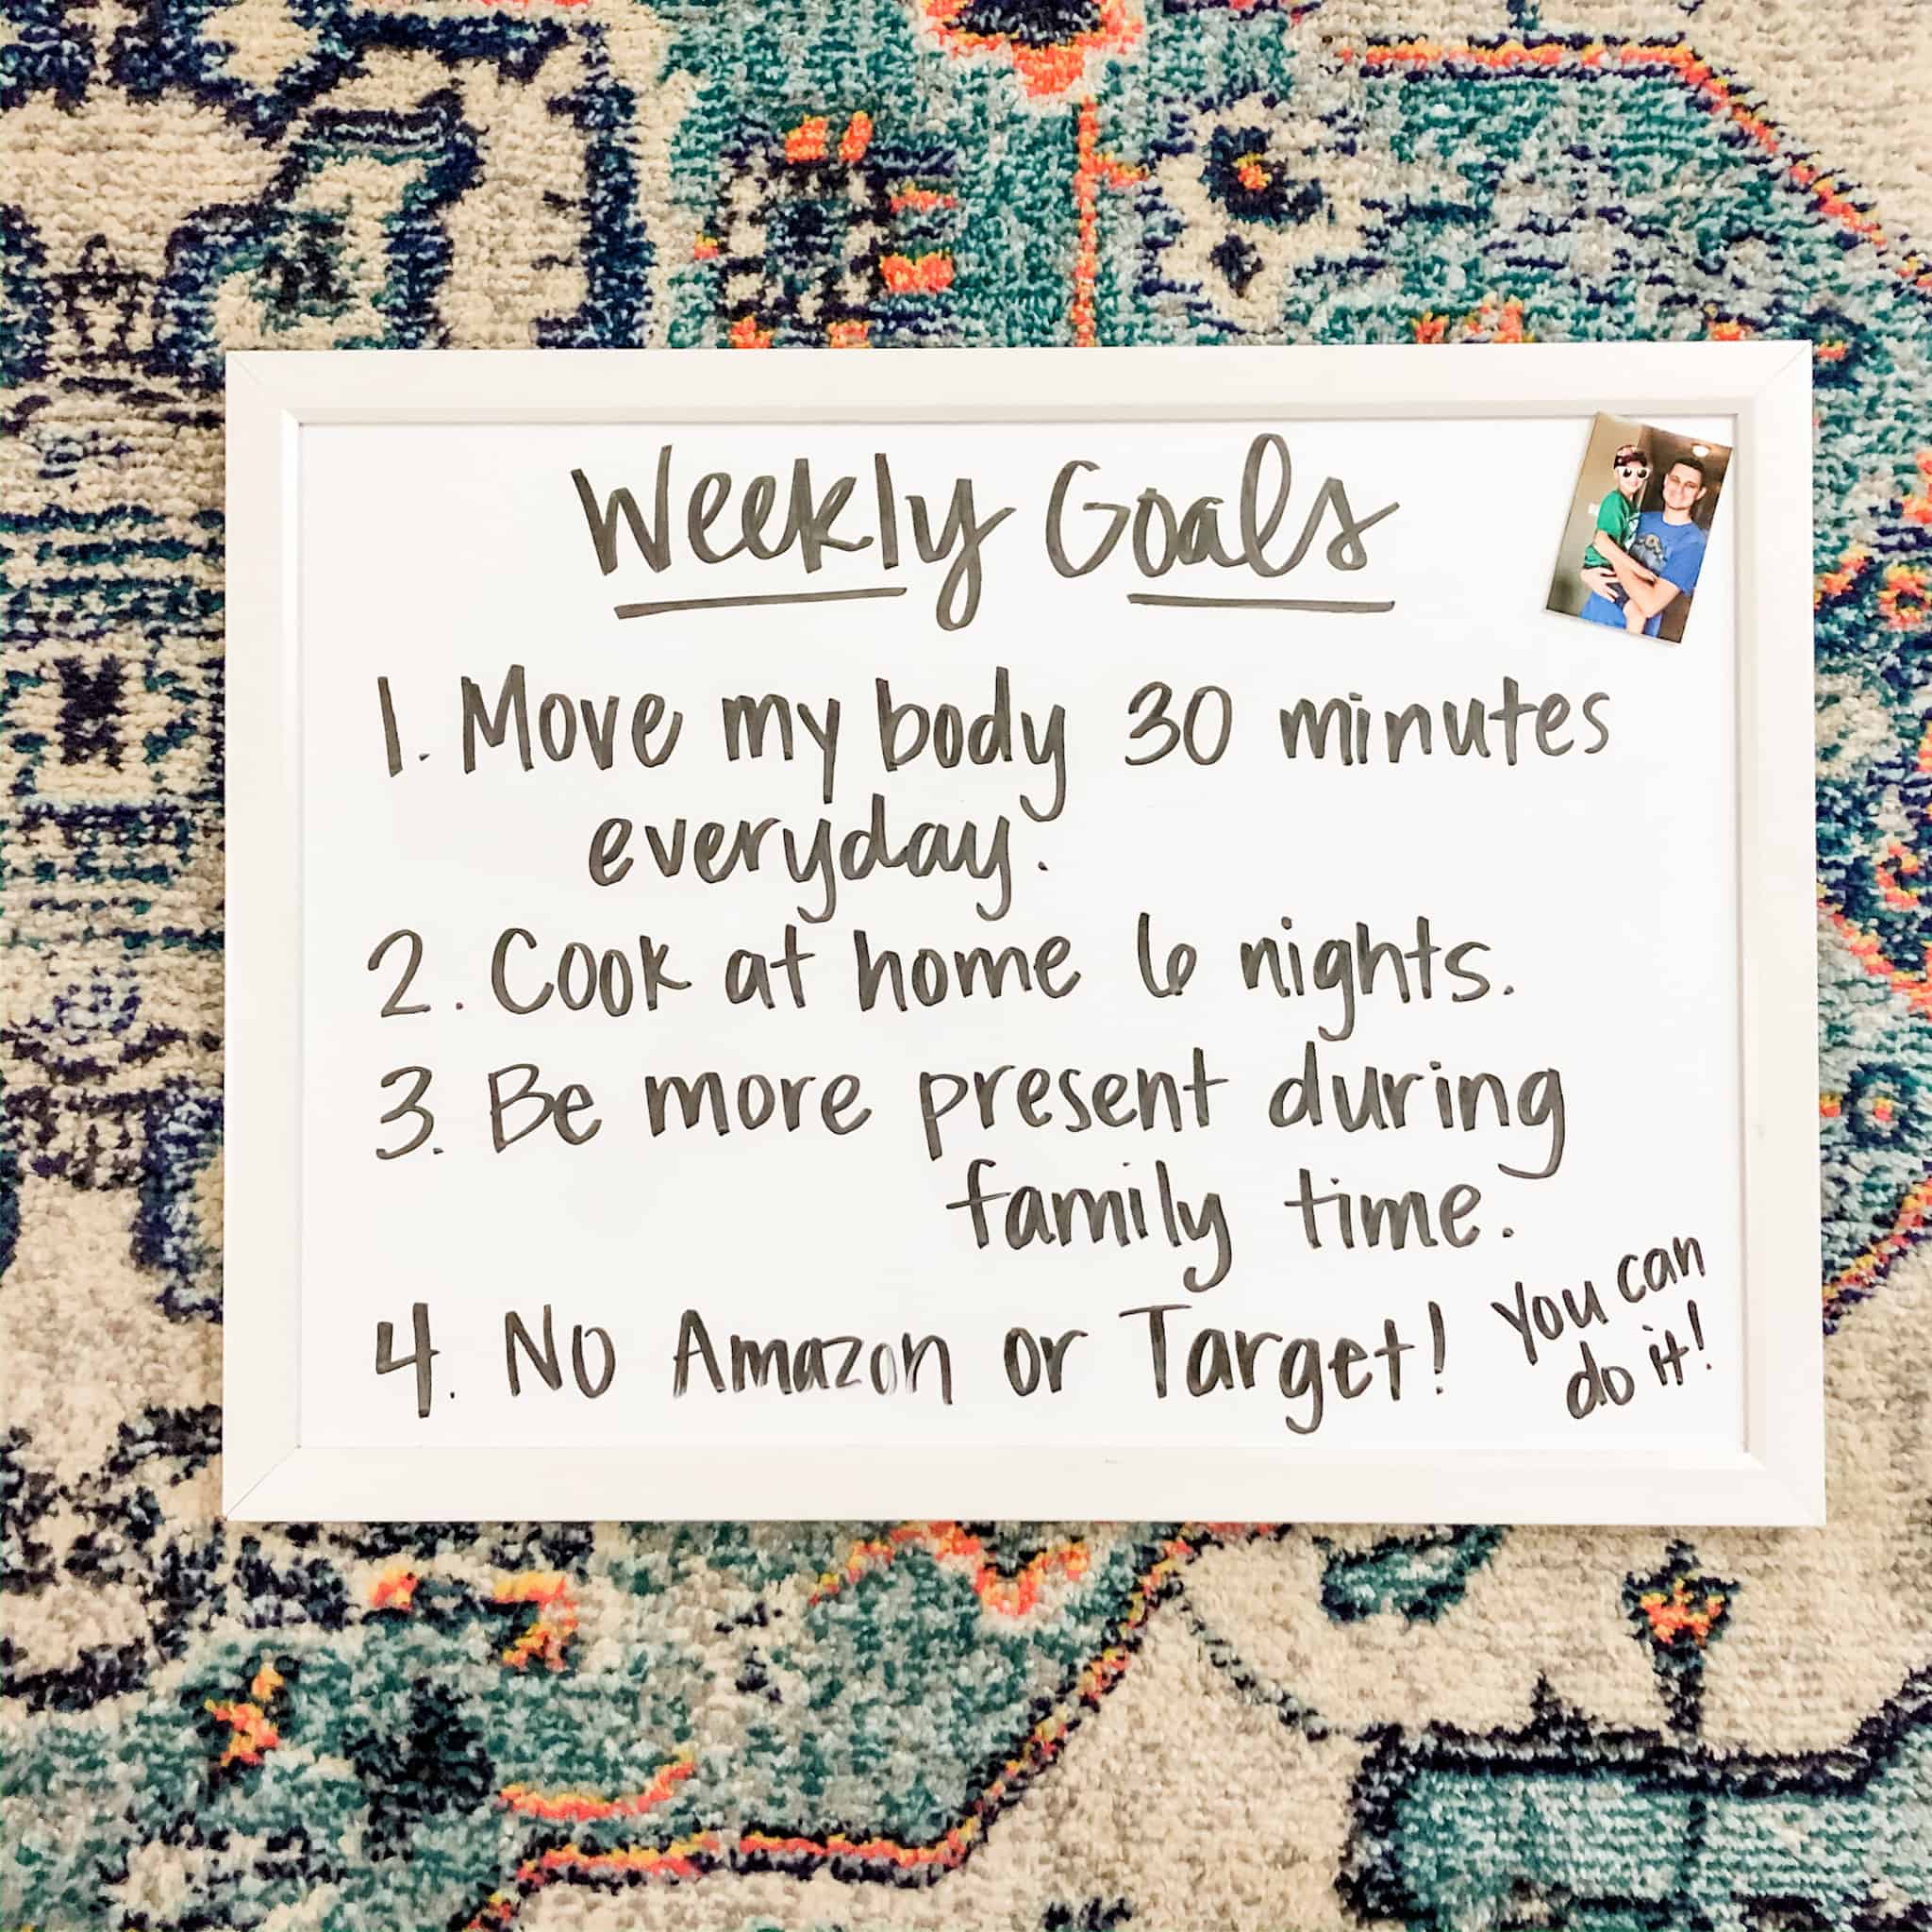 Weekly Goals
1. Move my body 30 minutes
everyday.
2. Cook at home 6 nights.
3. Be more present during
family time.
4. No Amazon or Target!
You can
do it!